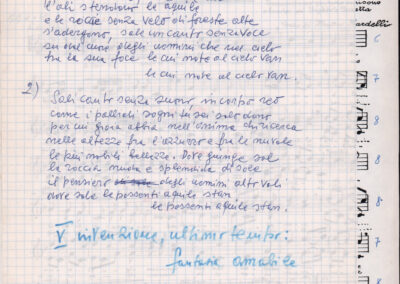 l'ali stendono le aquile
e le rocce senza velo di foreste alte
s'adergono, sale un canto senza voce
su dal cuore degli uomini che nel cielo
tra la sua foce le cui note al cielo van
le cui note al cielo van.
2)
Sali canto senza suono,
come i pallidi sogni tu sei solo dono
per cui gioia abbia nell'anima chi ricerca
nelle altezze fra l'azzurro e fra le nuvole
le più nobili bellezze. Dove giunge sol
la roccia nuda e splendida di sole
il pensiero degli uomini altri voli
dove solo le possenti aquile stan
le possenti aquile stan.
V intenzione, ultimo tempo:
fantasia amabile
ardelli
6
7
8
8
8
7
8